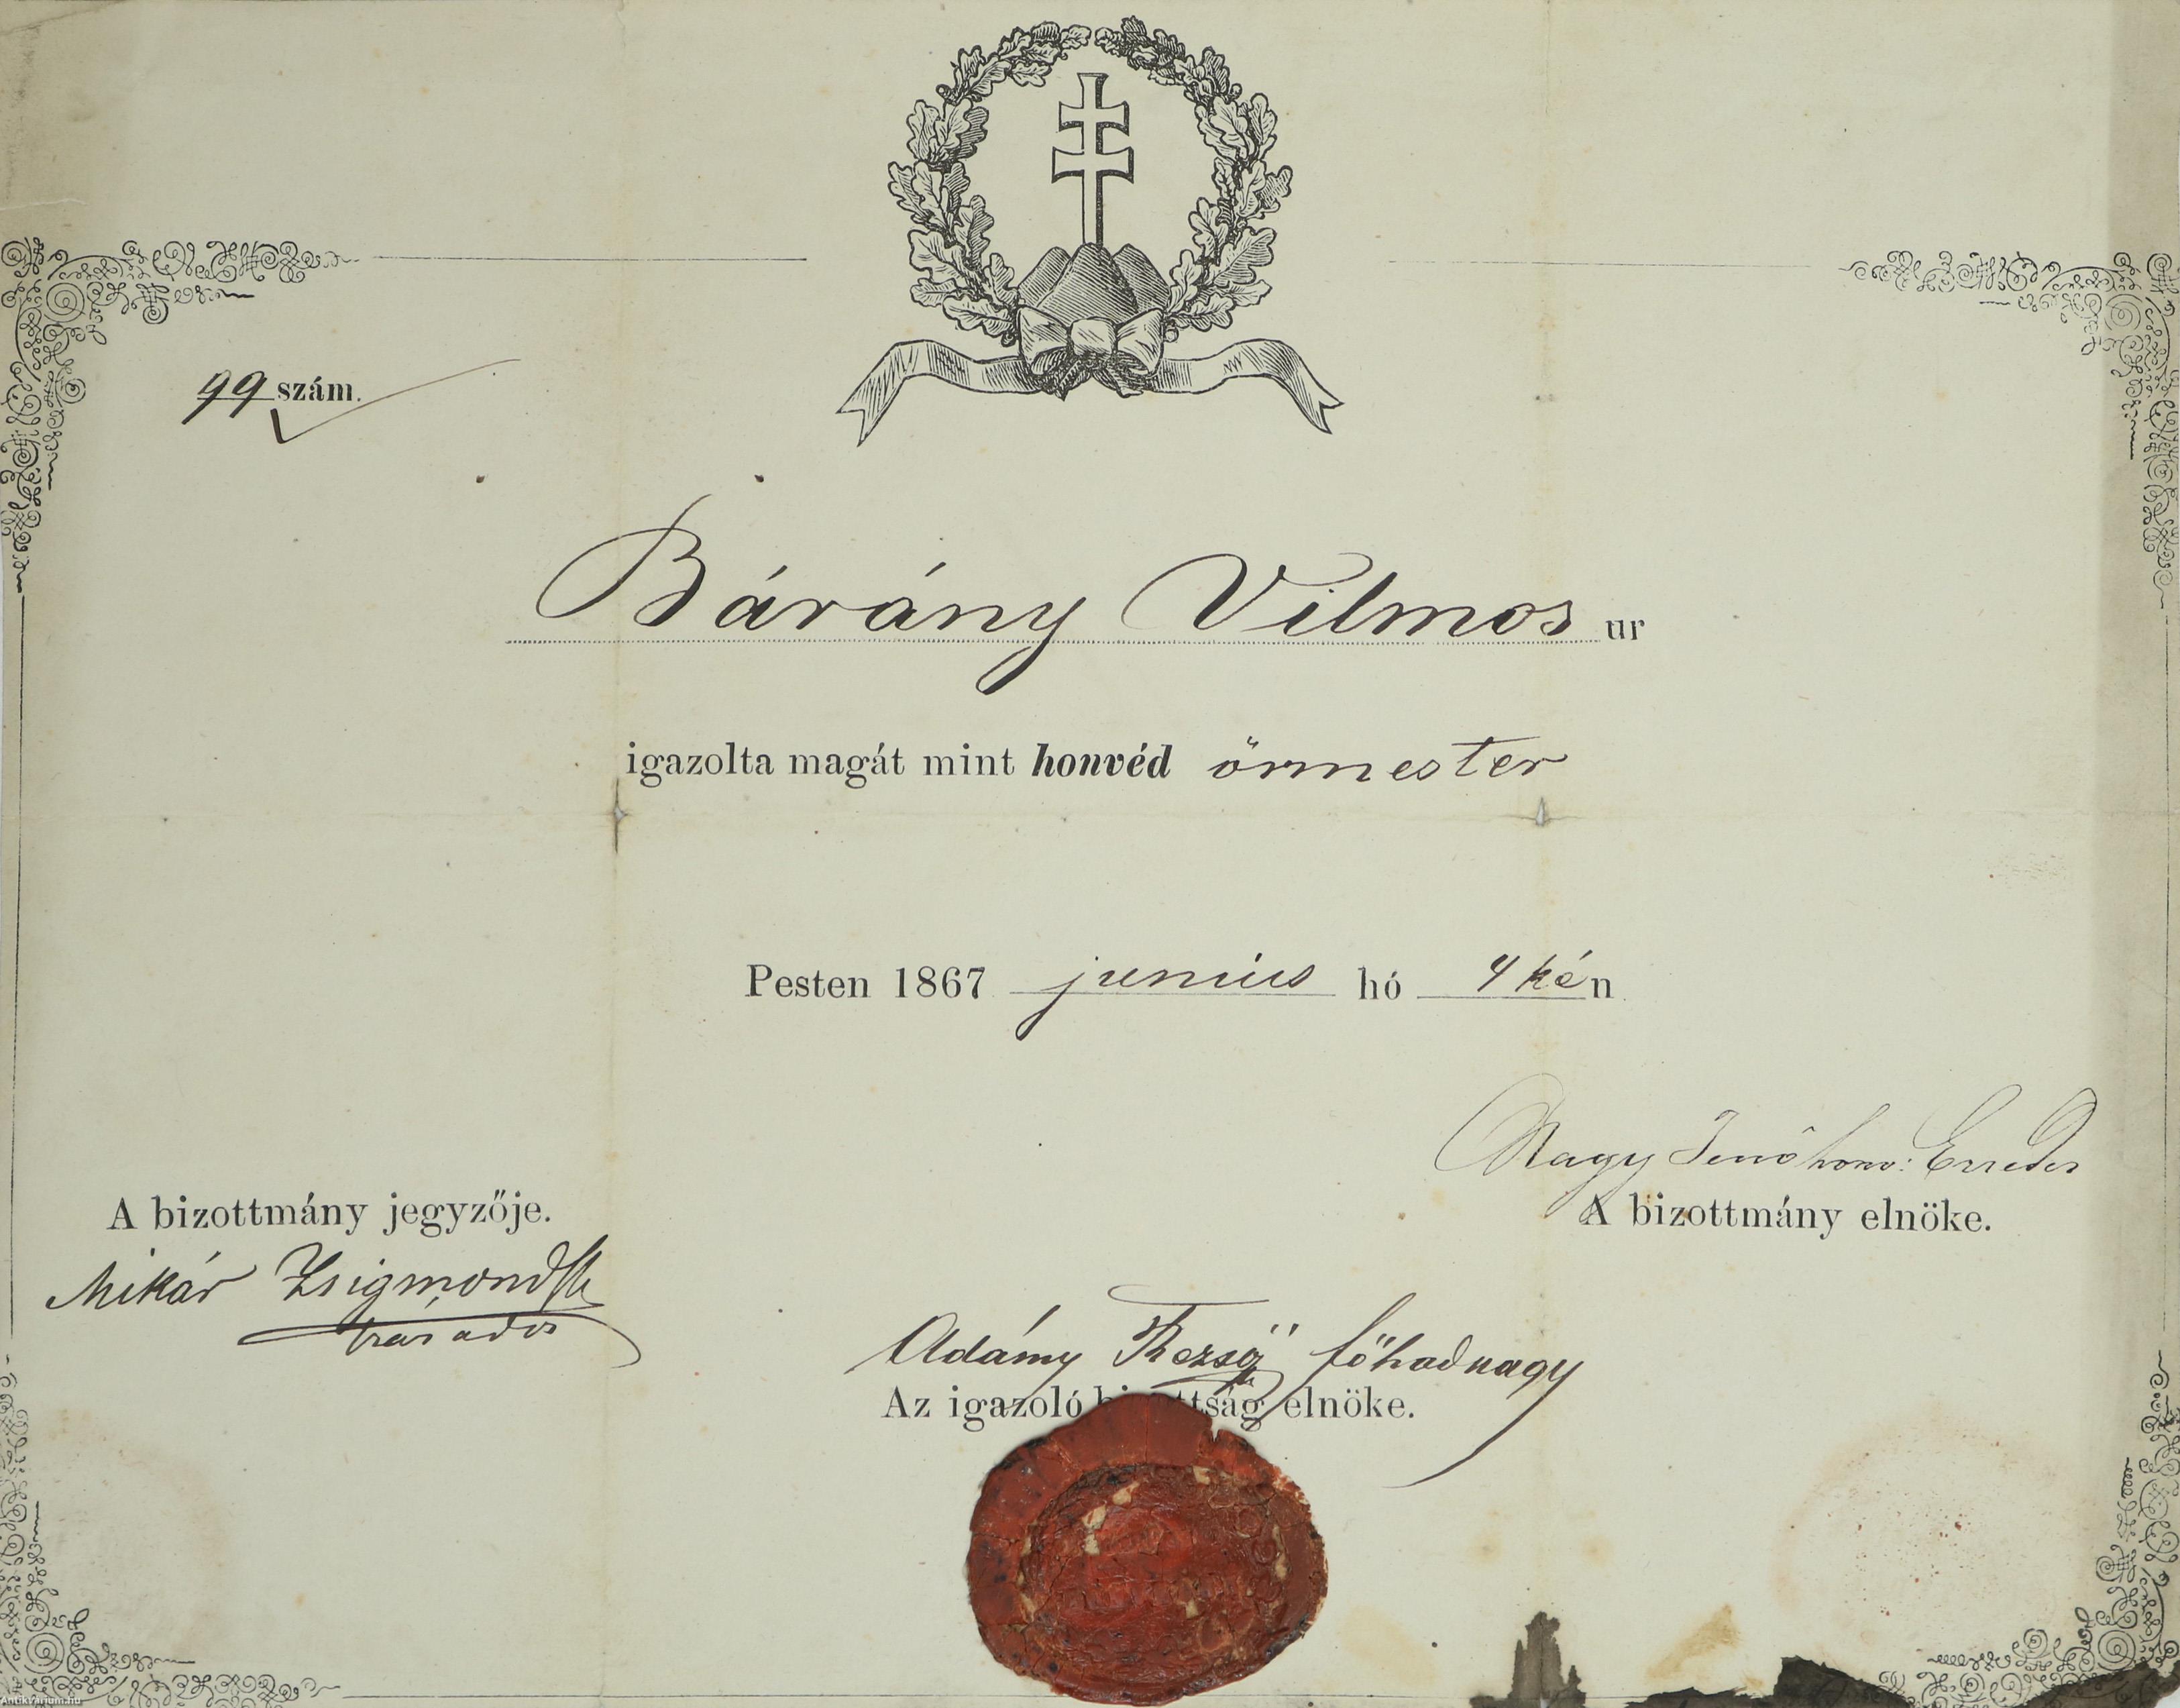 99 szám.
Bárány Vilmos ur
igazolta magát mint honvéd őrmester
Pesten 1867 junius hó 4 kén
Nagy Jenő honv: Ezredes
A bizottmány jegyzője.
A bizottmány elnöke.
Mikár Zsigmond
százados
Adámy Rezső főhadnagy
Az igazoló bizottság elnöke.
Antikvarium.hu